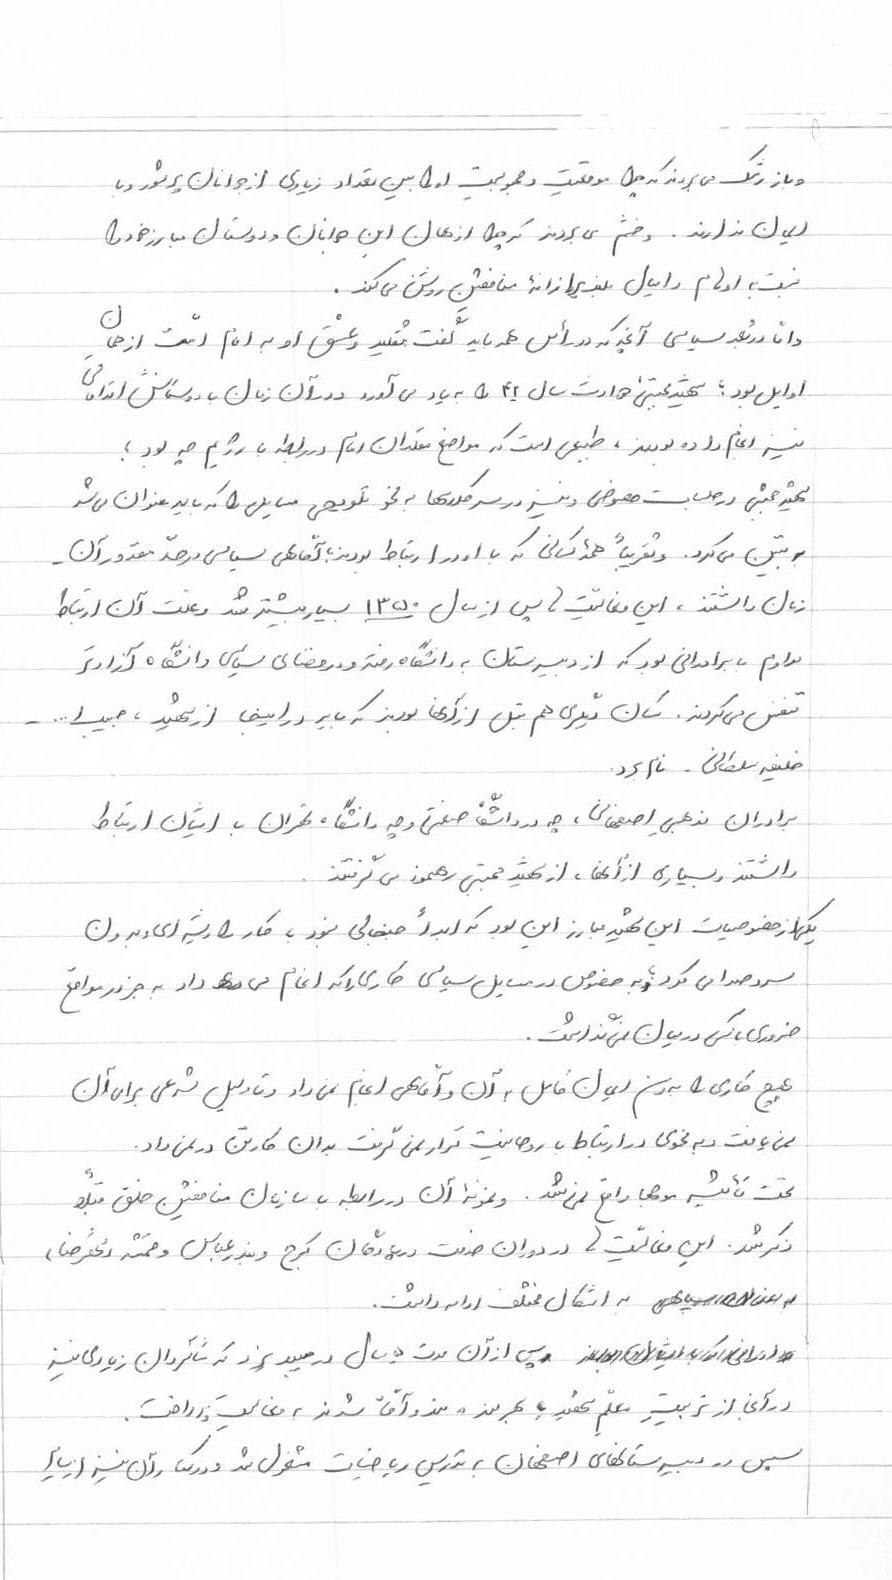 و باز رشک می‌بردند که چرا موفقیت و محبوبیت او را بین تعداد زیادی از جوانان پر شور و با
ایمان ندارند. و خشم می‌بردند که چرا اذهان این جوانان و دوستان مبارز خود را
نسبت به اوهام و امیال بلندپروازانهٔ منافقین روشن می‌کند.
و اما در بُعد سیاسی آنچه که در رأس همه باید گفت تقلید و عشق او به امام امّت از همان
اوایل بود؛ شهید محبتی حوادث سال ۴۲ را به یاد می‌آورد و در آن زمان با دوستانش اقداماتی
نیز انجام داده بودند، طبیعی است که مواضع مقلدان امام در رابطه با رژیم چه بود؛
شهید محبتی در جلسات خصوصی و نیز در سر کلاسها به نحو تلویحی مسایلی را که باید عنوان می‌شد
تبیین می‌کرد. و تقریباً همهٔ کسانی که با او در ارتباط بودند آگاهی سیاسی در حدّ مقدور آن
زمان داشتند، این فعالیّت‌ها پس از سال ۱۳۵۰ بسیار بیشتر شد و علت آن ارتباط
مداوم با برادرانی بود که از دبیرستان به دانشگاه رفته و در فضای سیاسی دانشگاه آزادتر
تنفس می‌کردند. کسان دیگری هم قبل از آنها بودند که باید در اینجا از شهید، حبیب‌ا...
خلیفه سلطانی - نام برد.
برادران مذهبی اصفهانی، چه در دانشگاه صنعتی و چه دانشگاه تهران با ایشان ارتباط
داشتند و بسیاری از آنها، از شهید محبتی رهنمود می‌گرفتند.
یکی از خصوصیات این شهید مبارز این بود که ابداً جنجالی نبود با کار را ریشه‌ای و بدون
سر و صدا می‌کرد و به خصوص در مسایل سیاسی کاری را که انجام می‌داد به جز در مواقع
ضروری با کسی در میان نمی‌گذاشت.
هیچ کاری را بدون ایمان کامل به آن و آگاهی انجام نمی‌داد و تا دلیل شرعی برای آن
نمی‌یافت و به نحوی در ارتباط با روحانیت قرار نمی‌گرفت بدان کار تن در نمی‌داد.
تحت تأثیر موجها واقع نمی‌شد. و نمونهٔ آن در رابطه با سازمان منافقین خلق قبلاً
ذکر شد. این فعالیّت‌ها در دوران خدمت در پادگان کرج و بندرعباس و حمّنه
به اشکال مختلف ادامه داشت.
پس از آن مدت ۵ سال در میبد یزد که شاگردان زیادی نیز
در آنجا از تربیت معلّم شهید بهره‌مند و آگاه شدند به فعالیت پرداخت.
سپس در دبیرستانهای اصفهان به تدریس ریاضیات مشغول شد و در کنار آن نیز از